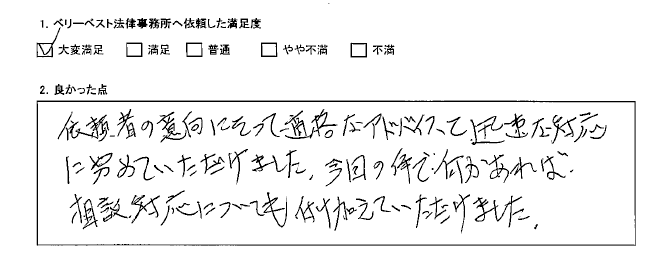 1. ベリーベスト法律事務所へ依頼した満足度
大変満足 満足 普通 やや不満 不満
2. 良かった点
依頼者の意向にそって適格なアドバイスで迅速な対応
に努めていただけました。今回の件で何かあれば
相談対応についても付け加えていただけました。